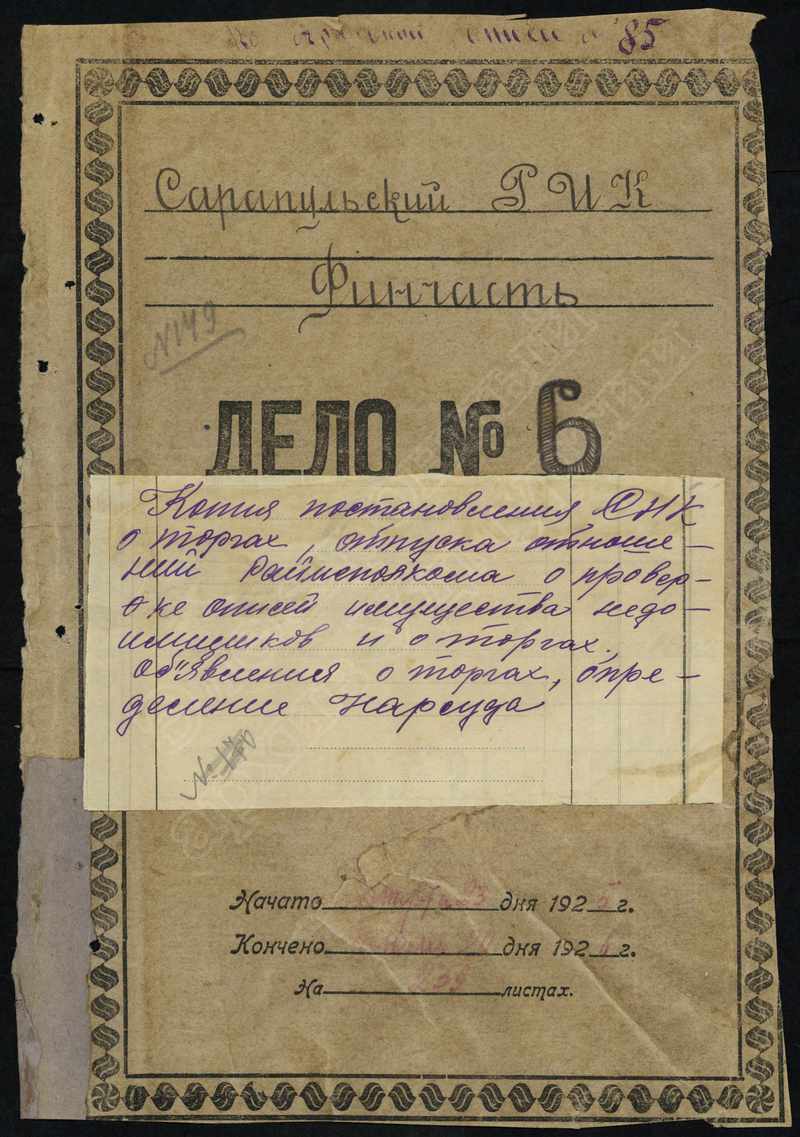 85
Сарапульский РИК
Финчасть
№149
ДЕЛО № 6
Копия постановления СНК
о торгах, отпуска отноше-
ний Райисполкома о провер-
ке описей имущества недо-
имщиков и о торгах.
Об"явления о торгах, опре-
деление Нарсуда
Начато 23 дня 1925 г.
Кончено дня 1926 г.
На листах.